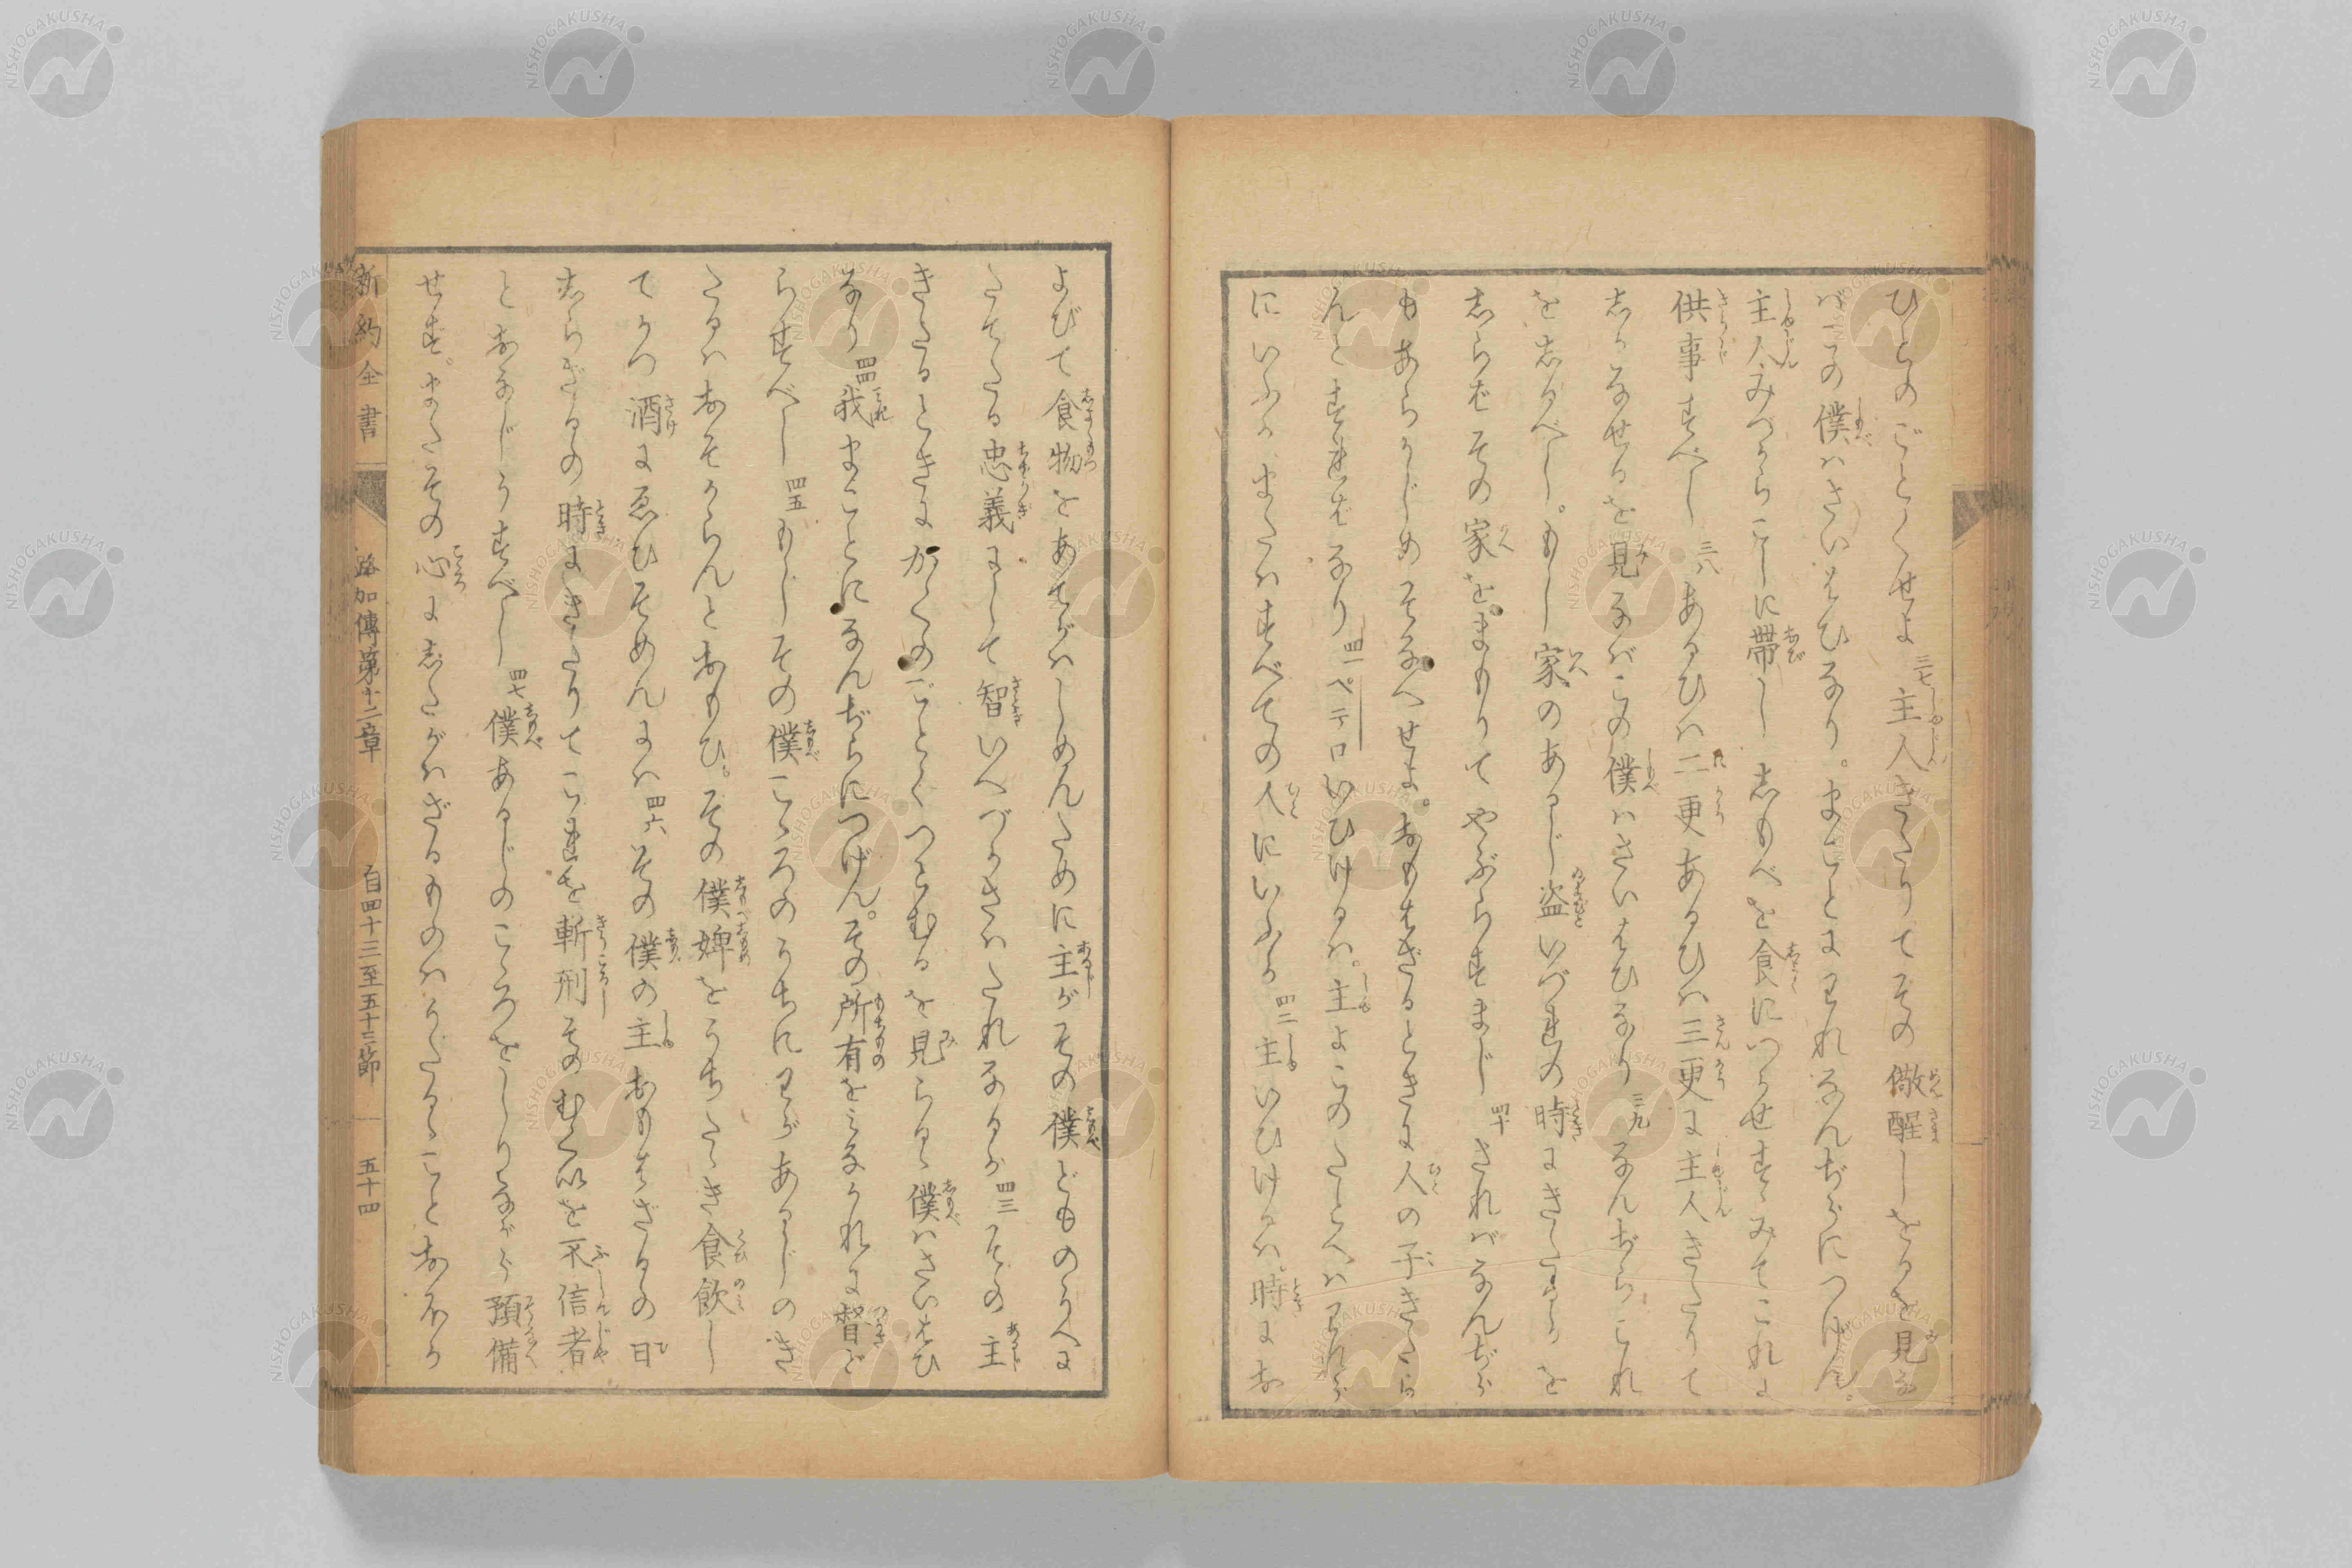 ひとのごとくせよ 三七 主人きたりてその儆醒しをるを見な
バこの僕ハさいはひなり。まことにわれなんぢらにつげん。
主人みづからこしに帯し しもべを食につかせすゝみてこれに
供事すべし 三八 あるひハ二更あるひハ三更に主人きたりて
しかなせるを見なバこの僕ハさいはひなり 三九 なんぢらこれ
をしるべし。もし家のあるじ盗いづれの時にきたるかを
しらばその家をまもりてやぶらすまじ 四十 されバなんぢら
もあらかじめそなへせよ。おもはざるときに人の子きたら
んとすればなり 四一 ペテロいひけるハ。主よこのたとへハわれら
にいふか またハすべての人にいふか 四二 主いひけるハ。時にお
よびて食物をあたがはしめんために主がその僕どものうへに
たてたる忠義にして智いべづかさハたれなるか 四三 その主
きたるときにかくのごとくつとむるを見らるゝ僕ハさいはひ
なり 四四 我まことになんぢらにつげん。その所有をみなかれに督ど
らすべし 四五 もしその僕こゝろのうちにわがあるじのき
たるハおそからんとおもひ。その僕婢をうちたゝき食飲し
てかつ酒にゑひそめんにハ 四六 その僕の主おもはざるの日
しらざるの時にきたりてこれを斬刑そのむくいを不信者
とおなじうすべし 四七 僕あるじのこゝろをしりながら預備
せず。またその心にしたがハざるものハうたるゝことおほか
新約全書 路加傳第十二章 自四十三至五十三節 五十四
NISHOGAKUSHA